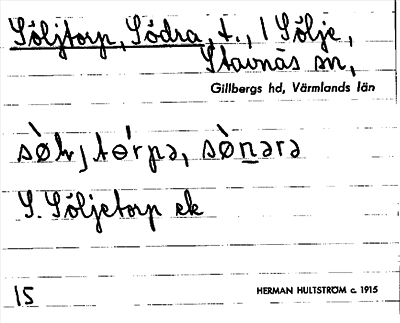 Söljtorp, Södra, t., i Sölje,
Stavnäs sn,
Gillbergs hd, Värmlands län
sø̀ɫjtɵ́rpə, sø̀nərə
S. Söljetorp ek
15
HERMAN HULTSTRÖM c. 1915